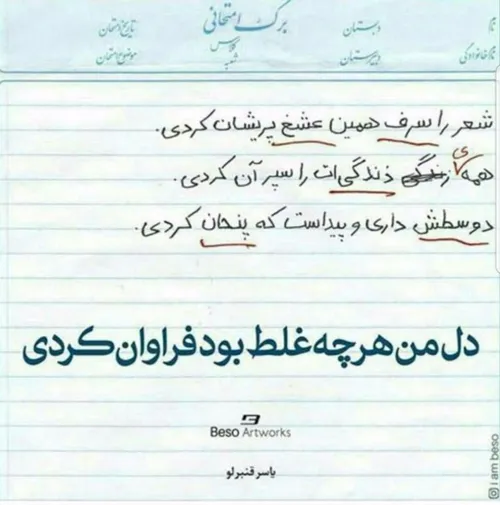 برگ امتحانی
نام
دبستان
تاریخ امتحان
نام خانوادگی
دبیرستان
کلاس
شعبه
موضوع امتحان
شعر را سرف همین عشغ پریشان کردی.
همه‌ی زندگی ذندگی‌ات را سپر آن کردی.
دوسطش داری و پیداست که پنحان کردی.
دل من هرچه غلط بود فراوان کردی
Beso Artworks
یاسر قنبرلو
i am beso